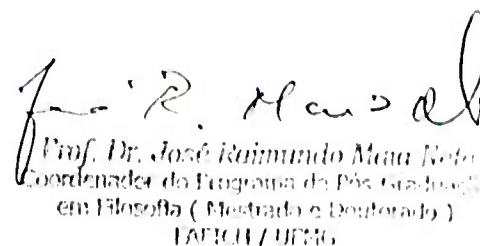 José R. Maia
Prof. Dr. José Raimundo Maia Neto
Coordenador do Programa de Pós-Graduaç
em Filosofia ( Mestrado e Doutorado )
FAFICH / UFMG